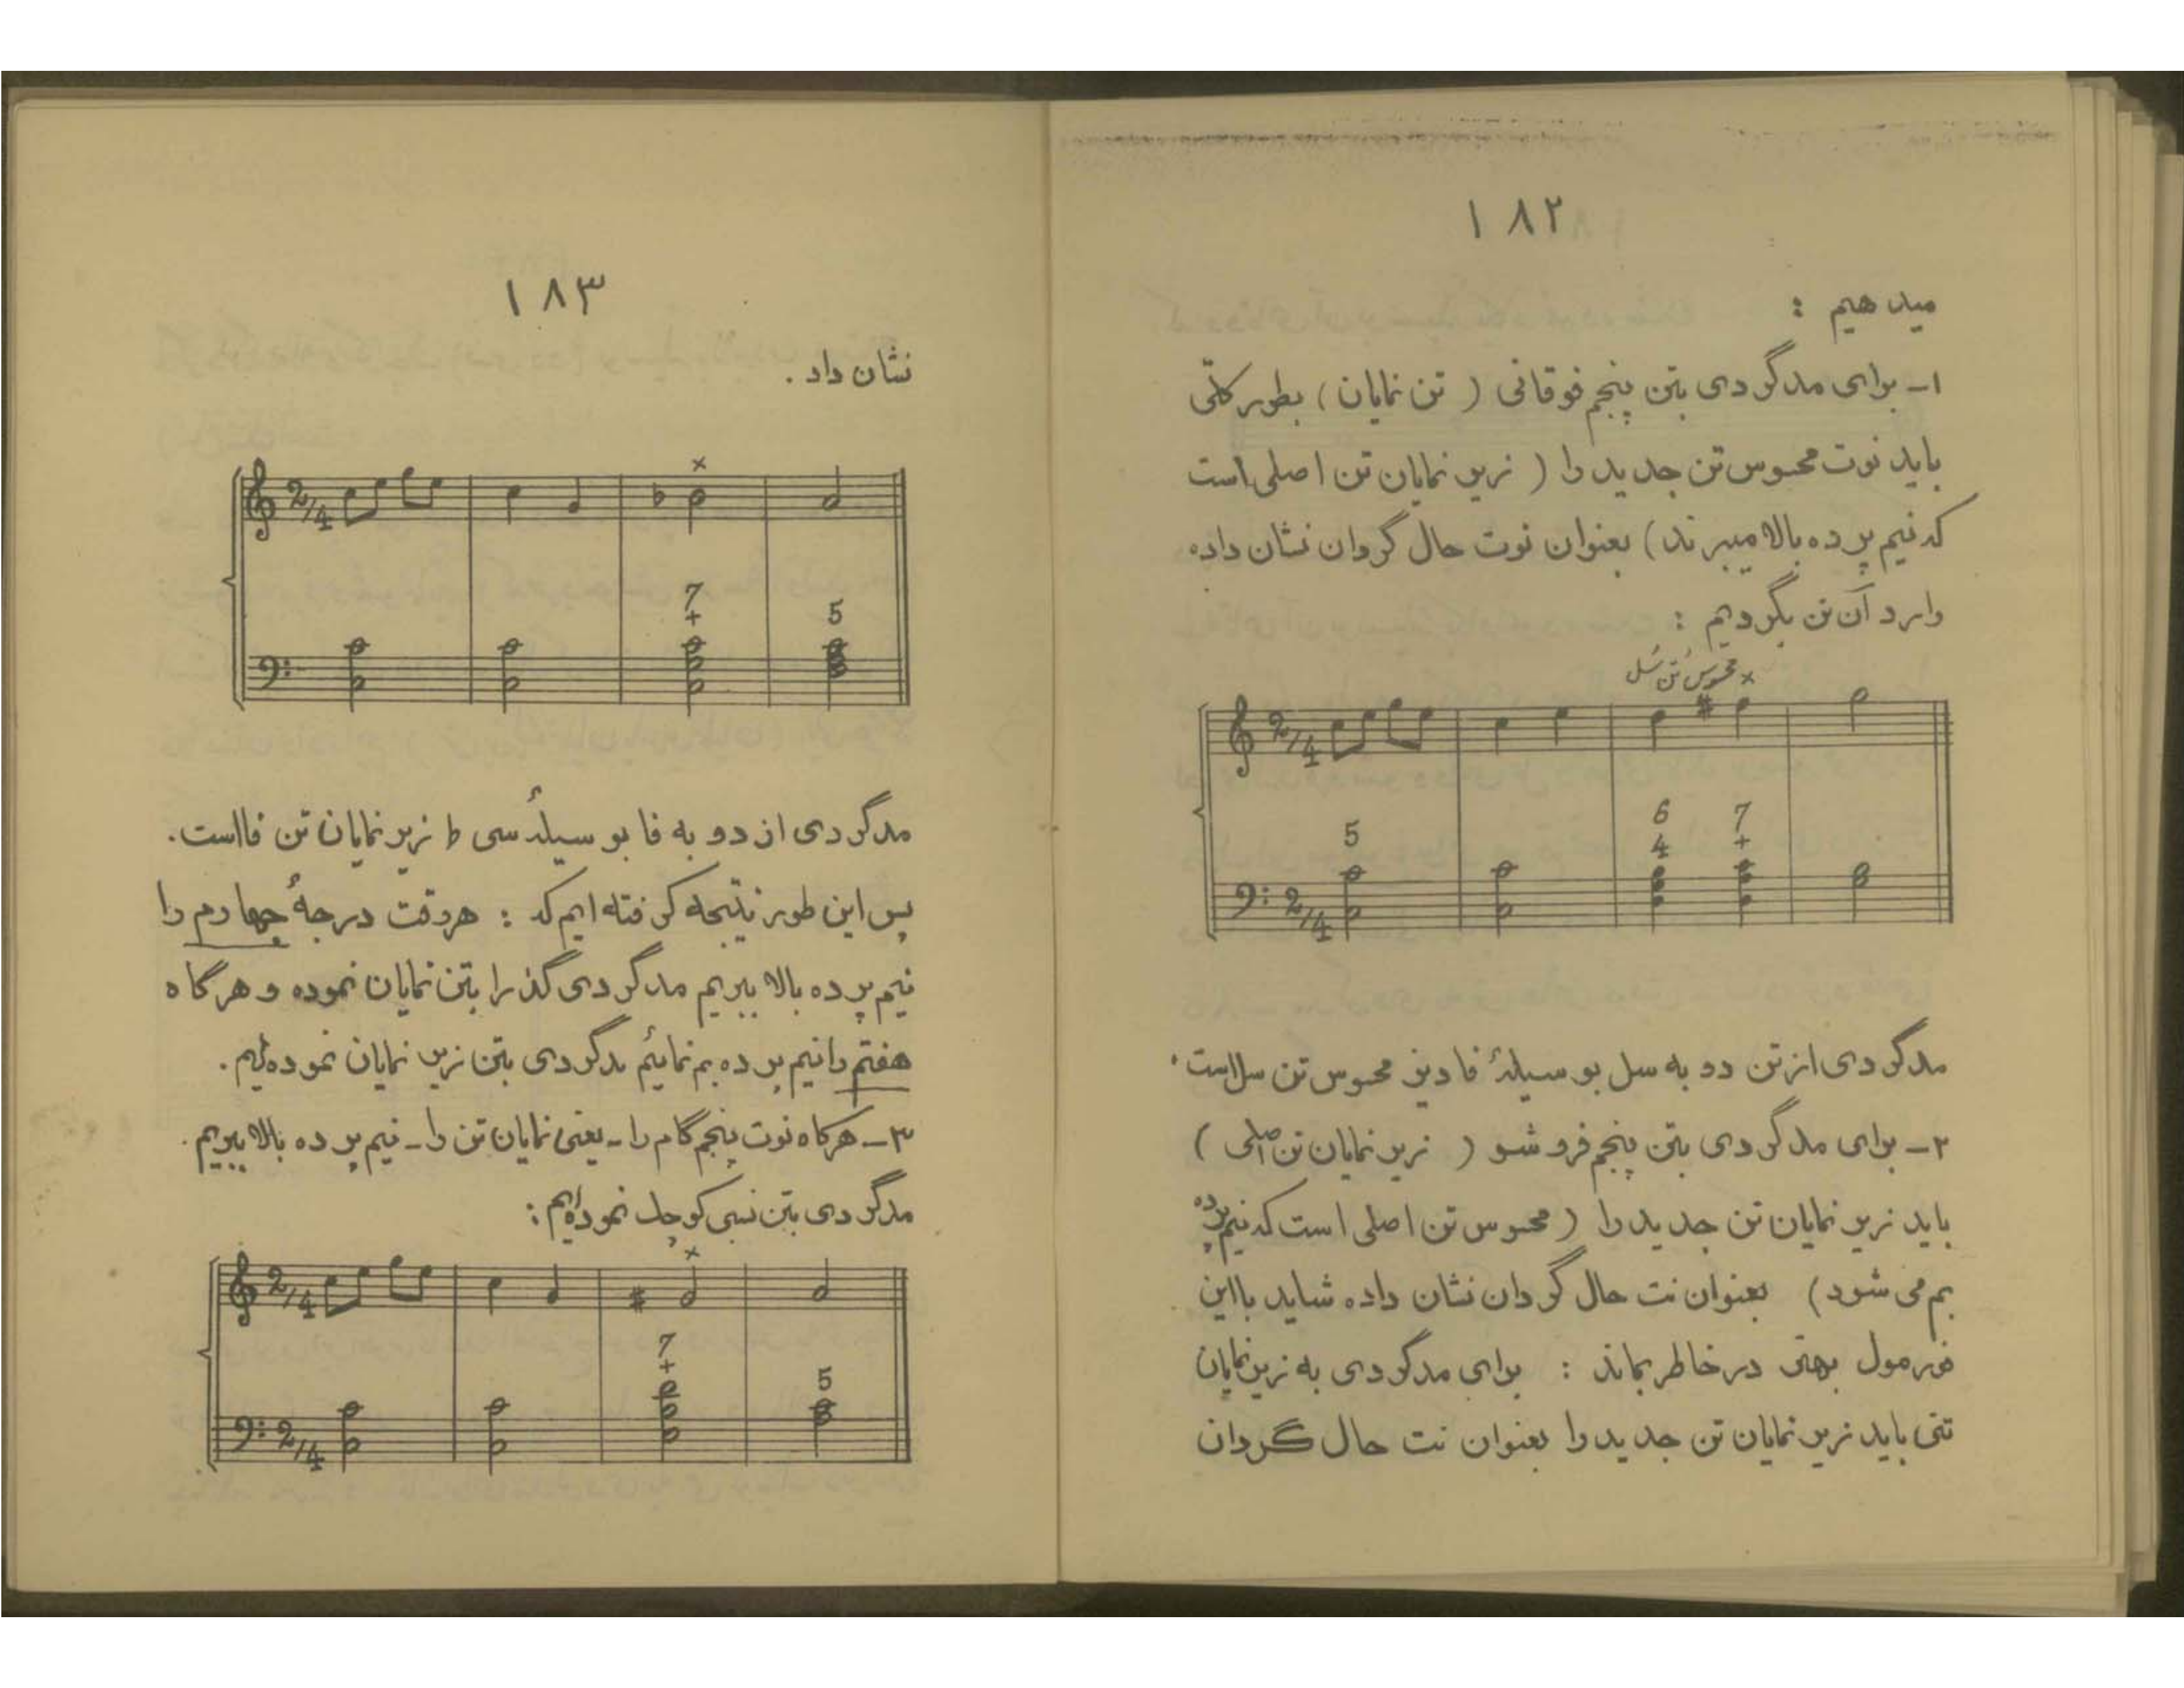 ۱۸۲
میدهیم :
۱- برای مدگردی بتن پنجم فوقانی ( تن نمایان ) بطور کلّی
باید نوت محسوس تن جدید را ( زیر نمایان تن اصلی است
که نیم پرده بالا میبرند ) بعنوان نوت حال گردان نشان داده
وارد آن تن بگردیم :
محسوس تن سل
×
2/4
5
6
4
7
+
2/4
مدگردی از تن دو به سل بوسیلهٔ فا دیز محسوس تن سل است .
۲- برای مدگردی بتن پنجم فروشو ( زیر نمایان تن اصلی )
باید زیر نمایان تن جدید را ( محسوس تن اصلی است که نیم پرده
بم می شود ) بعنوان نت حال گردان نشان داده شاید با این
فورمول بهتر در خاطر بماند : برای مدگردی به زیر نمایان
تنی باید زیر نمایان تن جدید را بعنوان نت حال گردان
۱۸۳
نشان داد .
×
2/4
7
+
5
مدگردی از دو به فا بوسیلهٔ سی b زیر نمایان تن فا است .
پس این طور نتیجه گرفته ایم که : هر وقت درجهٔ چهارم را
نیم پرده بالا ببریم مدگردی گذرا بتن نمایان نموده و هرگاه
هفتم را نیم پرده بم نمائیم مدگردی بتن زیر نمایان نموده ایم .
۳- هرگاه نوت پنجم گام را - یعنی نمایان تن را - نیم پرده بالا ببریم .
مدگردی بتن نسبی کوچک نموده ایم :
×
2/4
7
+
5
2/4